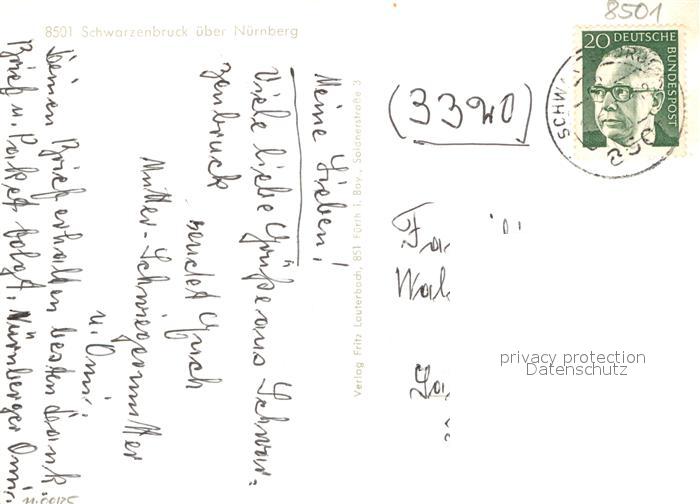 8501
8501 Schwarzenbruck über Nürnberg
20 DEUTSCHE
BUNDESPOST
SCHW
850
(3320)
Meine Lieben!
Viele liebe Grüße aus Schwar-
zenbruck
sendet Euch
Mutter-Schwiegermutter
u. Omi.
Deinen Brief erhalten besten Dank
Brief u. Paket folgt. Nürnberger Omi.
Verlag Fritz Lauterbach, 851 Fürth i. Bay., Soldnerstraße 3
privacy protection
Datenschutz